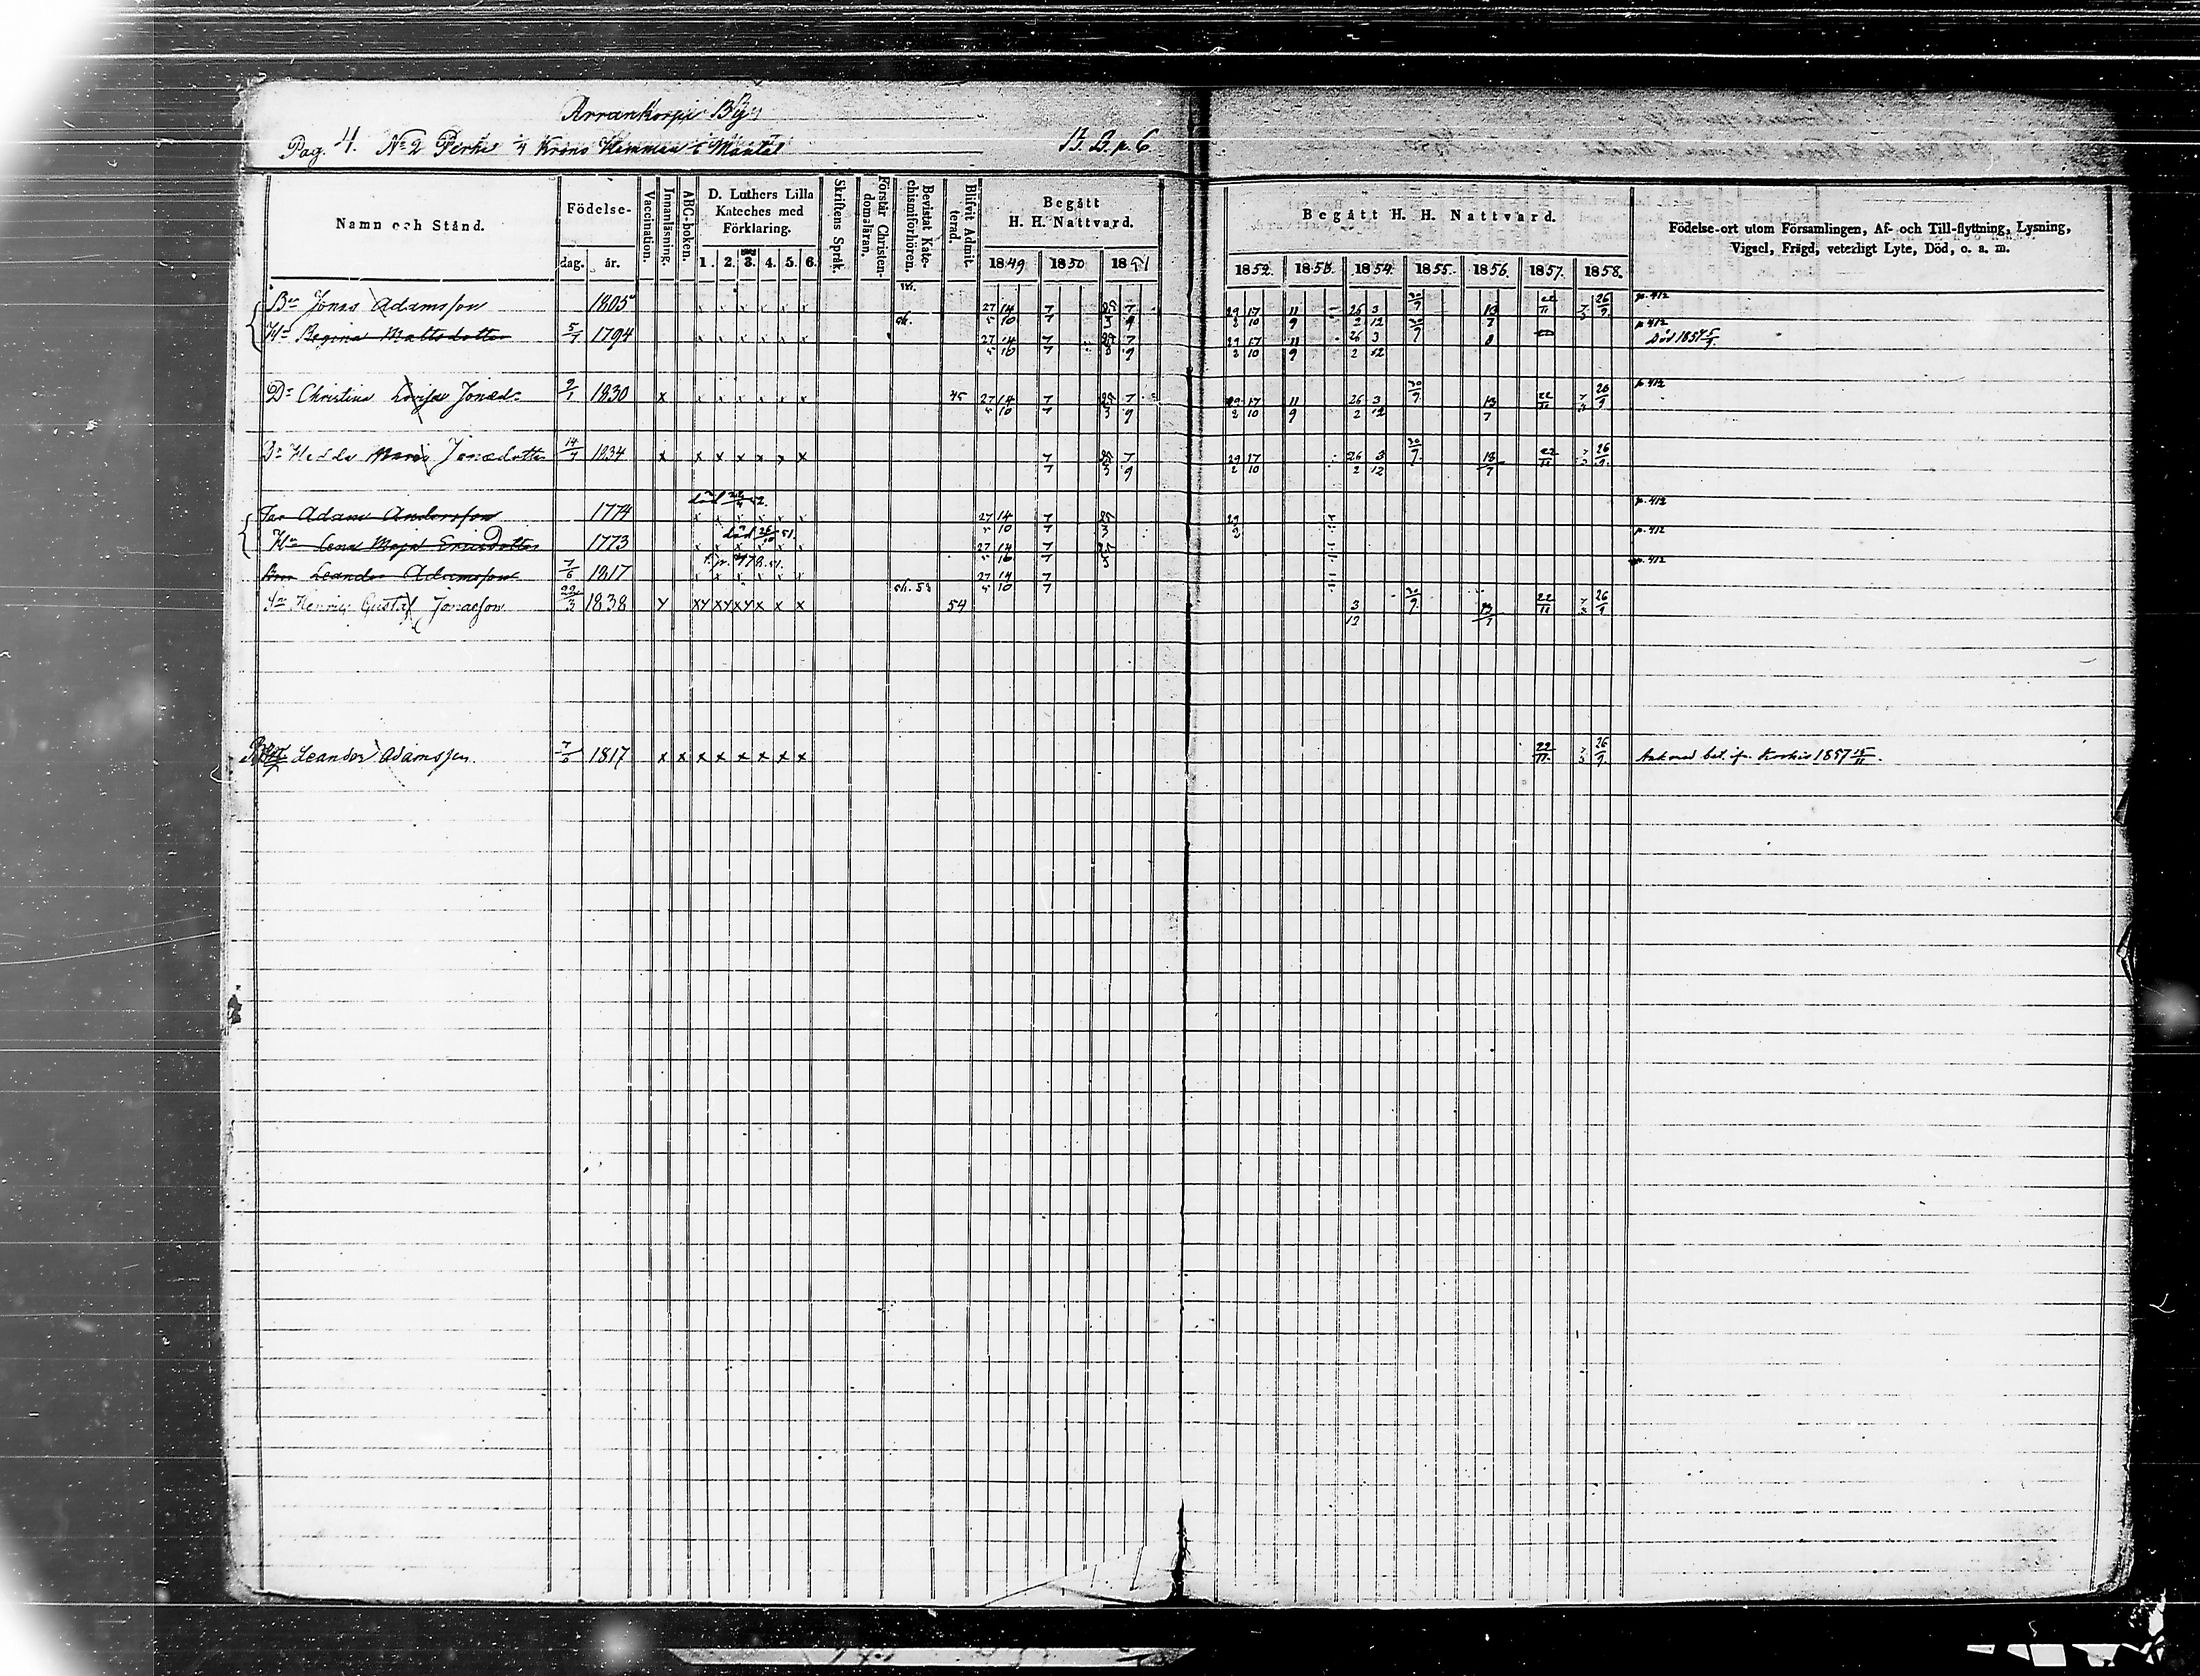 Arrankorpi By
Pag. 4. No 2 Perhe 1/4 Krono Hemman Mantal B.B.p.6
Namn och Stånd.
Födelse-
dag. år.
Vaccination.
Innanläsning.
ABC-boken.
D. Luthers Lilla Kateches med Förklaring.
1. 2. 3. 4. 5. 6.
Skriftens Språk.
Förstår Christendomsläran.
Bevistat Katechismiförhören.
Blifvit Admitterad.
Begått H. H. Nattvard.
1849 1850 1851
Begått H. H. Nattvard.
1852. 1853. 1854. 1855. 1856. 1857. 1858.
Födelse-ort utom Församlingen, Af- och Till-flyttning, Lysning,
Vigsel, Frägd, veterligt Lyte, Död, o. a. m.
Bn Jonas Adamsson 1805 27/5 14/10 7/7 25/3 7/9 29/2 17/10 11/9 26/2 3/12 30/9 13/7 22/11 7/3 26/9 p. 412
Hu Regina Mattsdotter 5/7 1794 27/5 14/10 7/7 25/3 7/9 29/2 17/10 11/9 26/2 3/12 30/9 p 412
Död 1857
Dr Christina Lovisa Jonæd: 9/1 1830 x 45 27/5 14/10 7/7 25/3 7/9 29/2 17/10 11/9 26/2 3/12 30/9 13/7 22/11 7/3 26/9 p 412
Dr Hedda Maria Jonædotter 14/7 1834 x x x x x x x 7/7 25/3 7/9 29/2 17/10 26/2 3/12 30/9 13/7 22/11 7/3 26/9
Far Adam Andersson 1774 död 52. 27/5 14/10 7/7 25/3 29/2 p. 412
Hu Lena Maja Ericsdotter 1773 död 51. 27/5 14/10 7/7 25/3 p. 412
Leander Adamsson 7/6 1817 27/5 14/10 7/7 p. 412
Sn Henric Gustaf Jonasson 22/3 1838 54 3/12 30/9 13/7 22/11 7/3 26/9
Leander Adamsson. 7/6 1817 x x x x x x x x 22/11 7/3 26/9 Ank med bet. ifr. Koskis 1857 15/11.